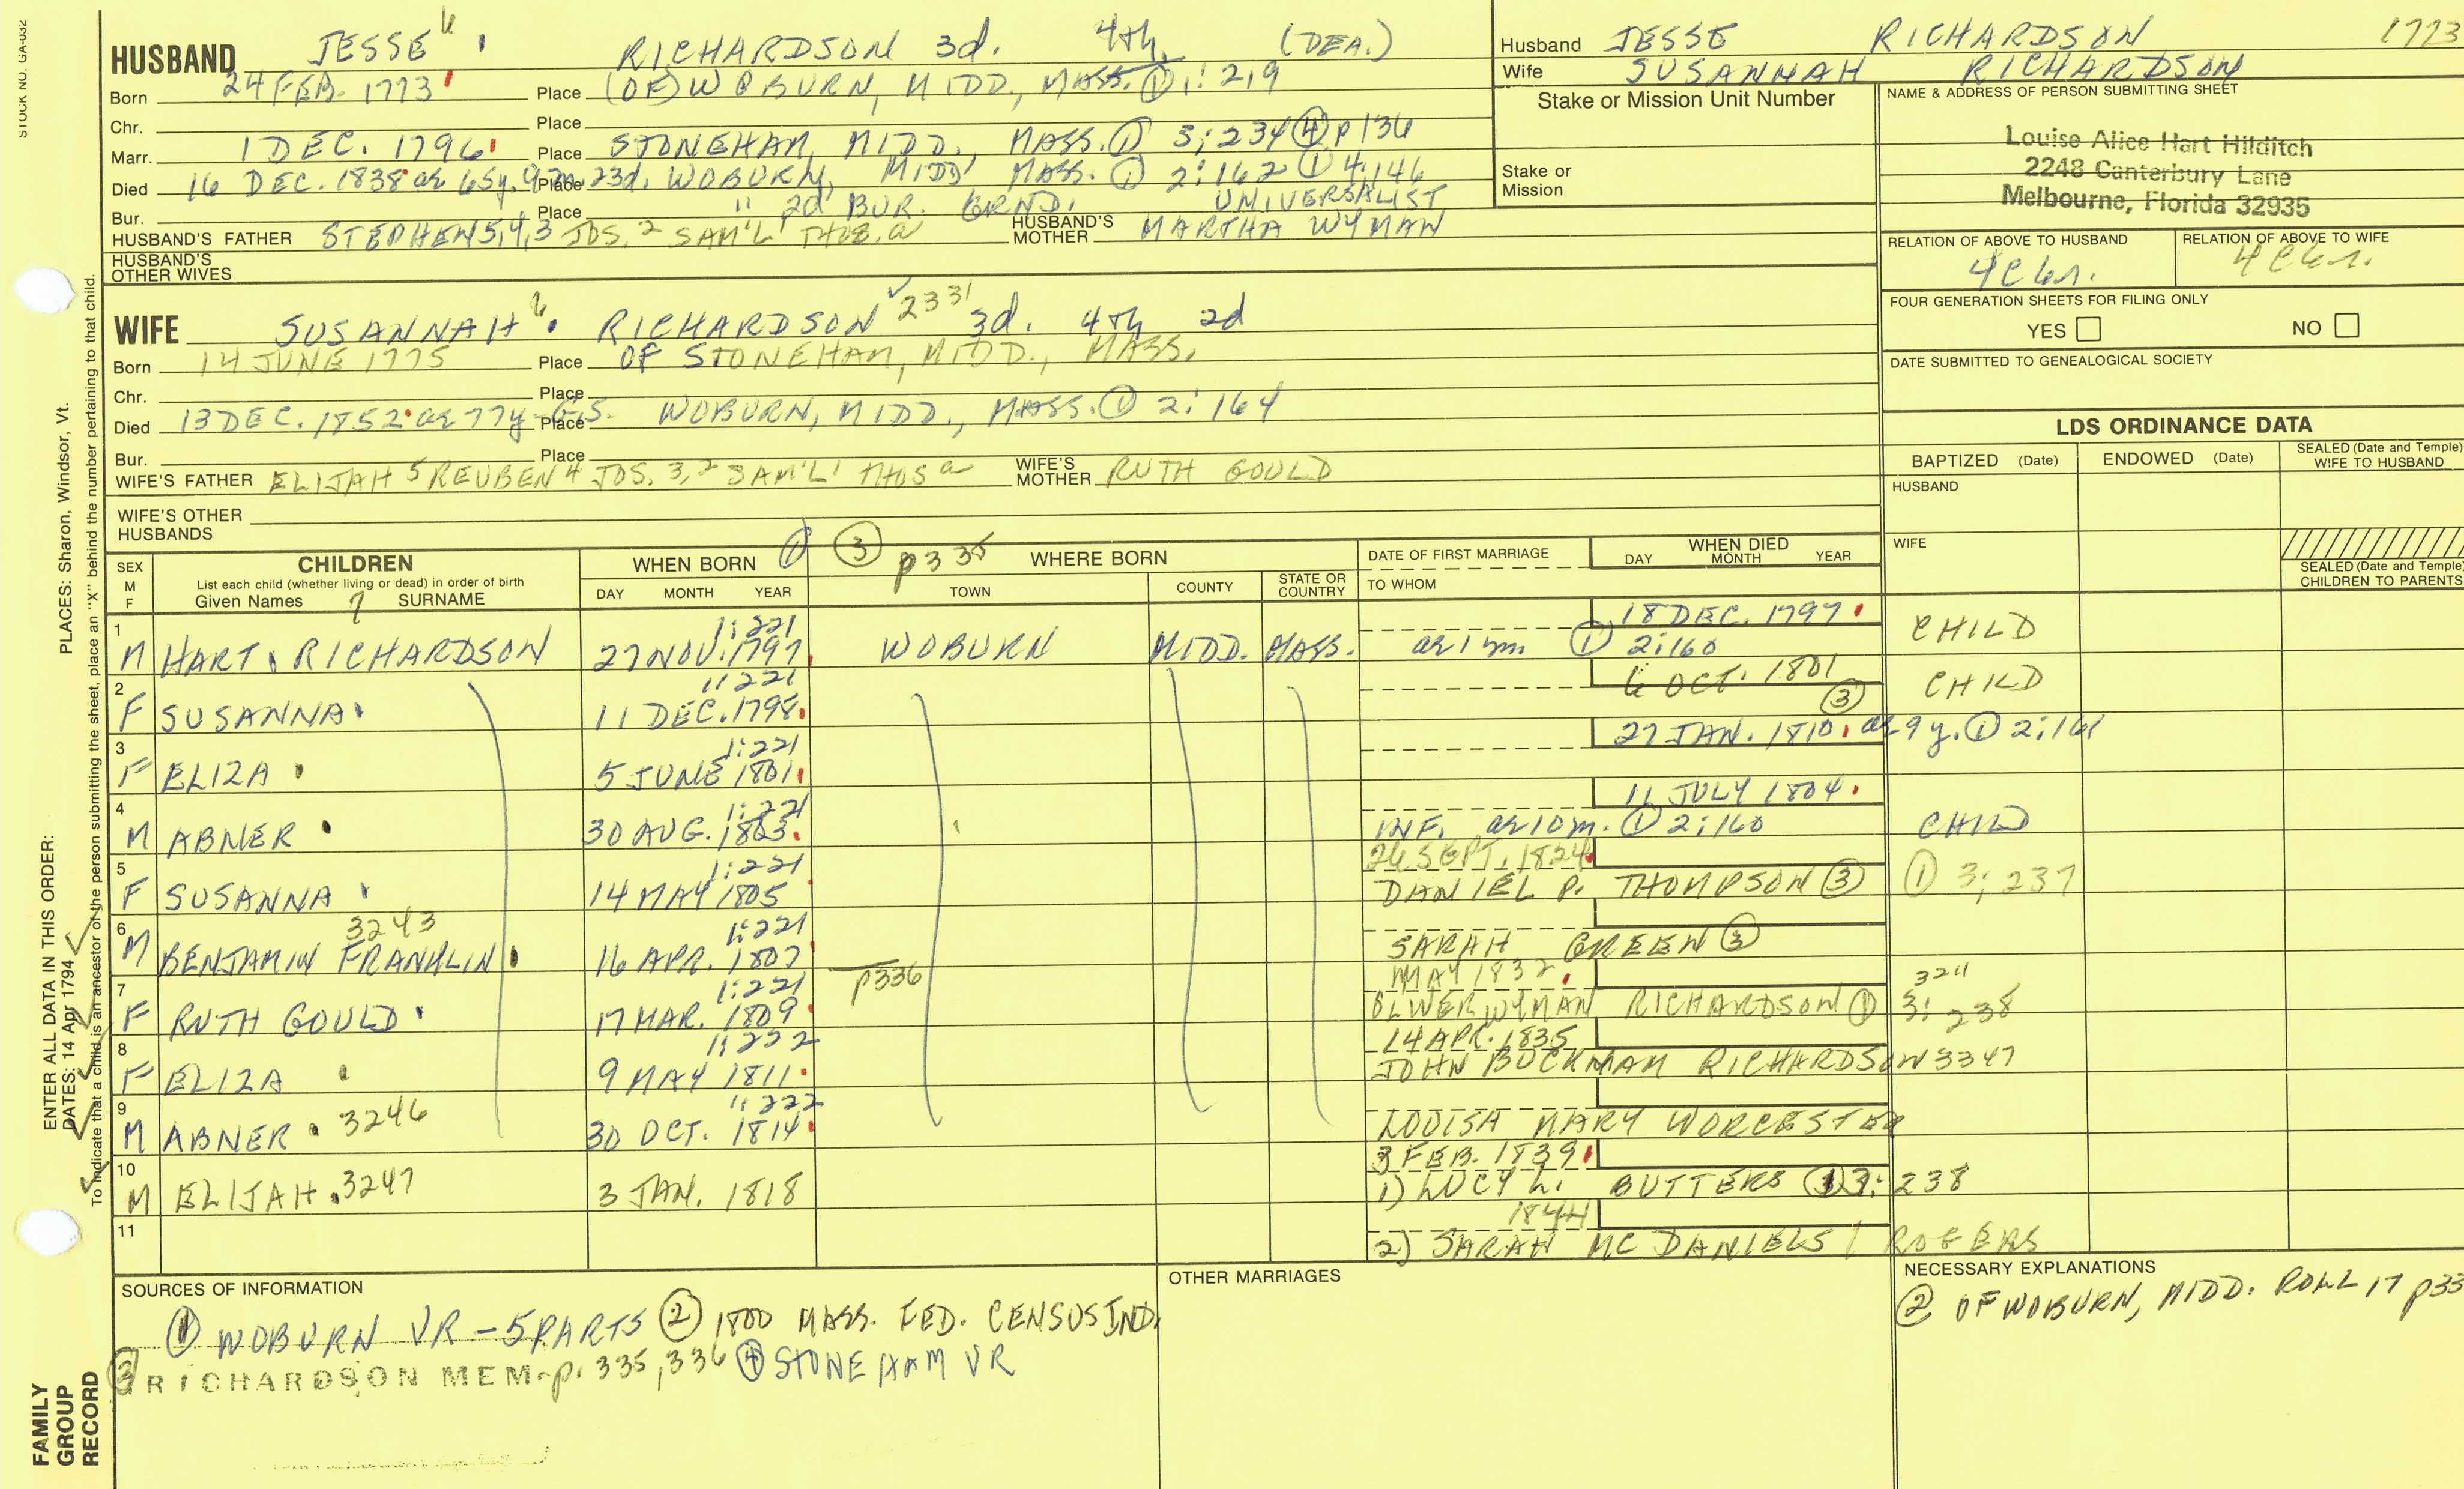 STOCK NO. GA-032
HUSBAND JESSE 6 RICHARDSON 3d. 4th (DEA.)
Born 24 FEB. 1773 Place (OF) WOBURN, MIDD., MASS. ① 1:219
Chr. Place
Marr. 1 DEC. 1796 Place STONEHAM, MIDD., MASS. ① 3:234 ④ p136
Died 16 DEC. 1838 ae 65y. 9m. 23d. Place WOBURN, MIDD, MASS. ① 2:162 ① 4:146
Bur. Place " 2d BUR. GRND. UNIVERSALIST
HUSBAND'S FATHER STEPHEN 5,4,3 JOS. 2 SAM'L 1 THOS. a HUSBAND'S MOTHER MARTHA WYMAN
HUSBAND'S OTHER WIVES
WIFE SUSANNAH 6 RICHARDSON 2331 3d. 4th 2d
Born 14 JUNE 1775 Place OF STONEHAM, MIDD., MASS.
Chr. Place
Died 13 DEC. 1852 ae 77y - G.S. Place WOBURN, MIDD., MASS. ① 2:164
Bur. Place
WIFE'S FATHER ELIJAH 5 REUBEN 4 JOS. 3,2 SAM'L 1 THOS a WIFE'S MOTHER RUTH GOULD
WIFE'S OTHER HUSBANDS
Husband JESSE RICHARDSON 1773
Wife SUSANNAH RICHARDSON
Stake or Mission Unit Number
Stake or Mission
NAME & ADDRESS OF PERSON SUBMITTING SHEET
Louise Alice Hart Hilditch
2248 Canterbury Lane
Melbourne, Florida 32935
RELATION OF ABOVE TO HUSBAND RELATION OF ABOVE TO WIFE
4C6r. 4C6r.
FOUR GENERATION SHEETS FOR FILING ONLY
YES NO
DATE SUBMITTED TO GENEALOGICAL SOCIETY
LDS ORDINANCE DATA
BAPTIZED (Date) ENDOWED (Date) SEALED (Date and Temple) WIFE TO HUSBAND
HUSBAND
WIFE
SEALED (Date and Temple) CHILDREN TO PARENTS
SEX M F CHILDREN WHEN BORN ① ③ p335 WHERE BORN DATE OF FIRST MARRIAGE WHEN DIED
List each child (whether living or dead) in order of birth
Given Names 7 SURNAME DAY MONTH YEAR TOWN COUNTY STATE OR COUNTRY TO WHOM DAY MONTH YEAR
1:221 18 DEC. 1797
1 M HART RICHARDSON 27 NOV. 1797 WOBURN MIDD. MASS. ae 1m ① 2:160 CHILD
1:221 6 OCT. 1801
2 F SUSANNA 11 DEC. 1798 ③ CHILD
1:221 27 JAN. 1810, ae 9y. ① 2:161
3 F ELIZA 5 JUNE 1801
1:221 11 JULY 1804
4 M ABNER 30 AUG. 1803 INF. ae 10m. ① 2:160 CHILD
1:221 26 SEPT. 1824
5 F SUSANNA 14 MAY 1805 DANIEL P. THOMPSON ③ ① 3:237
3243 1:221
6 M BENJAMIN FRANKLIN 16 APR. 1807 SARAH GREEN ③
1:221 p336 MAY 1832 3211
7 F RUTH GOULD 17 MAR. 1809 OLIVER WYMAN RICHARDSON ① 3:238
1:222 14 APR. 1835
8 F ELIZA 9 MAY 1811 JOHN BUCKMAN RICHARDSON 3347
1:222
9 M ABNER 3246 30 OCT. 1814 LOUISA MARY WORCESTER
3 FEB. 1839
10 M ELIJAH 3247 3 JAN. 1818 1) LUCY L. BUTTERS ① 3:238
1844
11 2) SARAH MC DANIELS / ROGERS
SOURCES OF INFORMATION OTHER MARRIAGES NECESSARY EXPLANATIONS
① WOBURN VR - 5 PARTS ② 1800 MASS. FED. CENSUS IND. ② OF WOBURN, MIDD. ROLL 17 p33
③ RICHARDSON MEM-p. 335, 336 ④ STONEHAM VR
ENTER ALL DATA IN THIS ORDER:
DATES: 14 Apr 1794 PLACES: Sharon, Windsor, Vt.
To indicate that a child is an ancestor of the person submitting the sheet, place an "X" behind the number pertaining to that child.
FAMILY GROUP RECORD